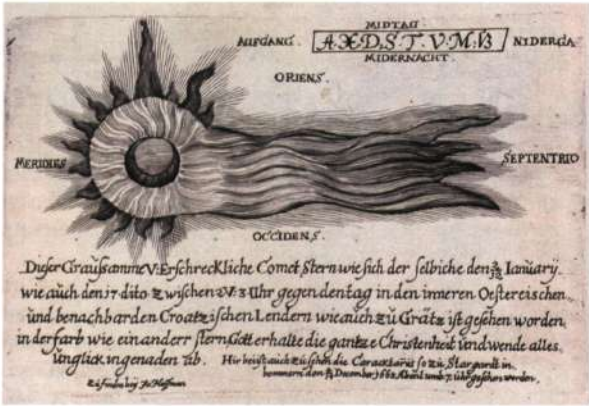 MIDTAG
AUFGANG. A.Æ.D,S.T.V.M:VB NIDERGA
MIDERNACHT.
ORIENS.
MERIDIES
SEPTENTRIO
OCCIDENS.
Diser Graußamme V: Erschreckliche Comet Stern wie sich der selbiche den Ianuarÿ.
wie auch den 17 dito zwischen 2 V: 3 Uhr gegen den tag in den inneren Oestereischen
und benachbarden Croatzischen Lendern wie auch zu Grätz ist gesehen worden
in der farb wie ein ander stern, Gott erhalte die gantze Christenheit und wende alles
ünglick in genaden ab. Hir beÿ ist auch zu sehen die Caracktäris so zu Stargardt in
den Decembrj 1662 umb 7. uhr gesehen worden.
Zu finden beÿ Hoffman